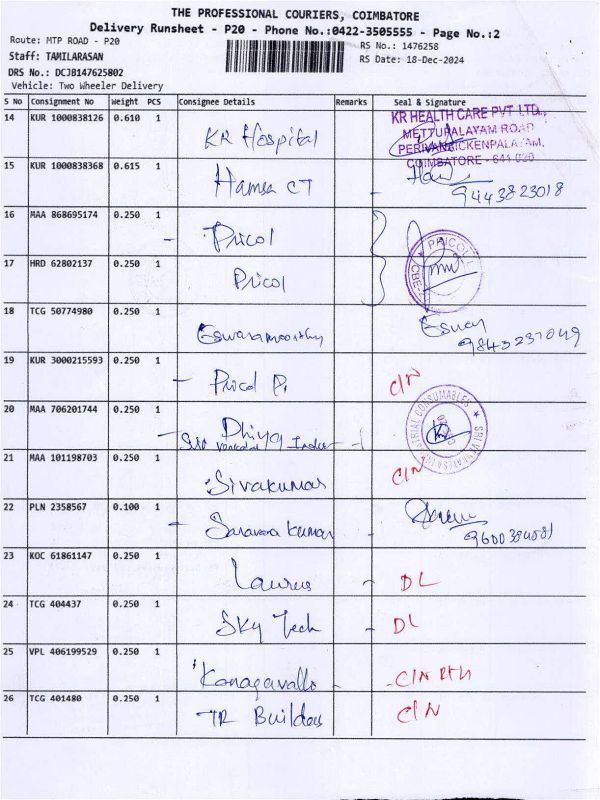 THE PROFESSIONAL COURIERS, COIMBATORE
Delivery Runsheet - P20 - Phone No.:0422-3505555 - Page No.:2
Route: MTP ROAD - P20
RS No.: 1476258
Staff: TAMILARASAN
RS Date: 18-Dec-2024
DRS No.: DCJB147625802
Vehicle: Two Wheeler Delivery
S No Consignment No Weight PCS Consignee Details Remarks Seal & Signature
14 KUR 1000838126 0.610 1 KR Hospital
KR HEALTH CARE PVT LTD.,
METTUPALAYAM ROAD
PERIYANAICKENPALAYAM,
COIMBATORE - 641 020
15 KUR 1000838368 0.615 1 Hamsa CT
9443823018
16 MAA 868695174 0.250 1 Pricol
17 HRD 62802137 0.250 1 Pricol
PRICOL
18 TCG 50774980 0.250 1 Eswaramoorthy
9843237049
19 KUR 3000215593 0.250 1 Pricol C/N
20 MAA 706201744 0.250 1 Dhiya
21 MAA 101198703 0.250 1 Sivakumar C/N
22 PLN 2358567 0.100 1 Saravana kumar
23 KOC 61861147 0.250 1 Laurus DL
24 TCG 404437 0.250 1 Sky Tech DL
25 VPL 406199529 0.250 1 C/N
26 TCG 401480 0.250 1 TR Builders C/N